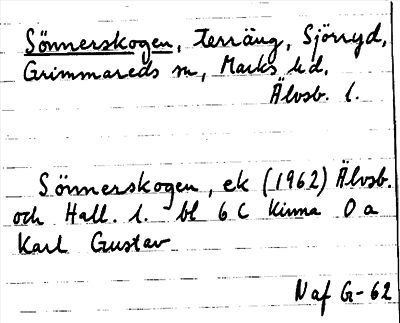 Sönnerskogen, terräng, Sjöryd,
Grimmareds sn, Marks hd,
Älvsb. l.
Sönnerskogen, ek (1962) Älvsb.
och Hall. l. bl 6 C Kinna 0 a
Karl Gustav
Naf G-62